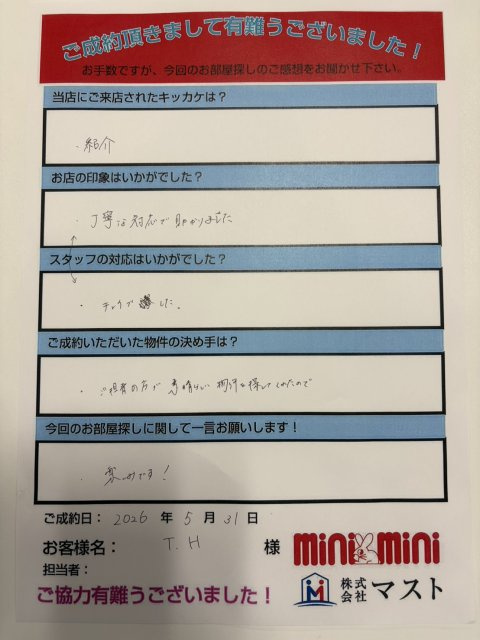 ご成約頂きまして有難うございました！
お手数ですが、今回のお部屋探しのご感想をお聞かせ下さい。
当店にご来店されたキッカケは？
・紹介
お店の印象はいかがでした？
・丁寧な対応で助かりました
スタッフの対応はいかがでした？
・した。
ご成約いただいた物件の決め手は？
・担者の方が素晴しい物件を探してくれたので
今回のお部屋探しに関して一言お願いします！
・です！
ご成約日： 2026 年 5 月 31 日
お客様名： T. H 様
mini mini
担当者：
株式会社 マスト
ご協力有難うございました！